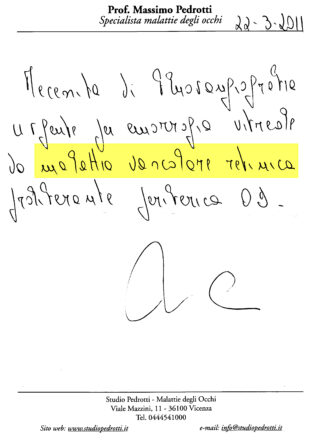 Prof. Massimo Pedrotti
Specialista malattie degli occhi
22-3-2011
Necessita di Fluorangiografia
urgente per emorragia vitreale
da malattia vascolare retinica
proliferante periferica OS.
Studio Pedrotti - Malattie degli Occhi
Viale Mazzini, 11 - 36100 Vicenza
Tel. 0444541000
Sito web: www.studiopedrotti.it
e-mail: info@studiopedrotti.it